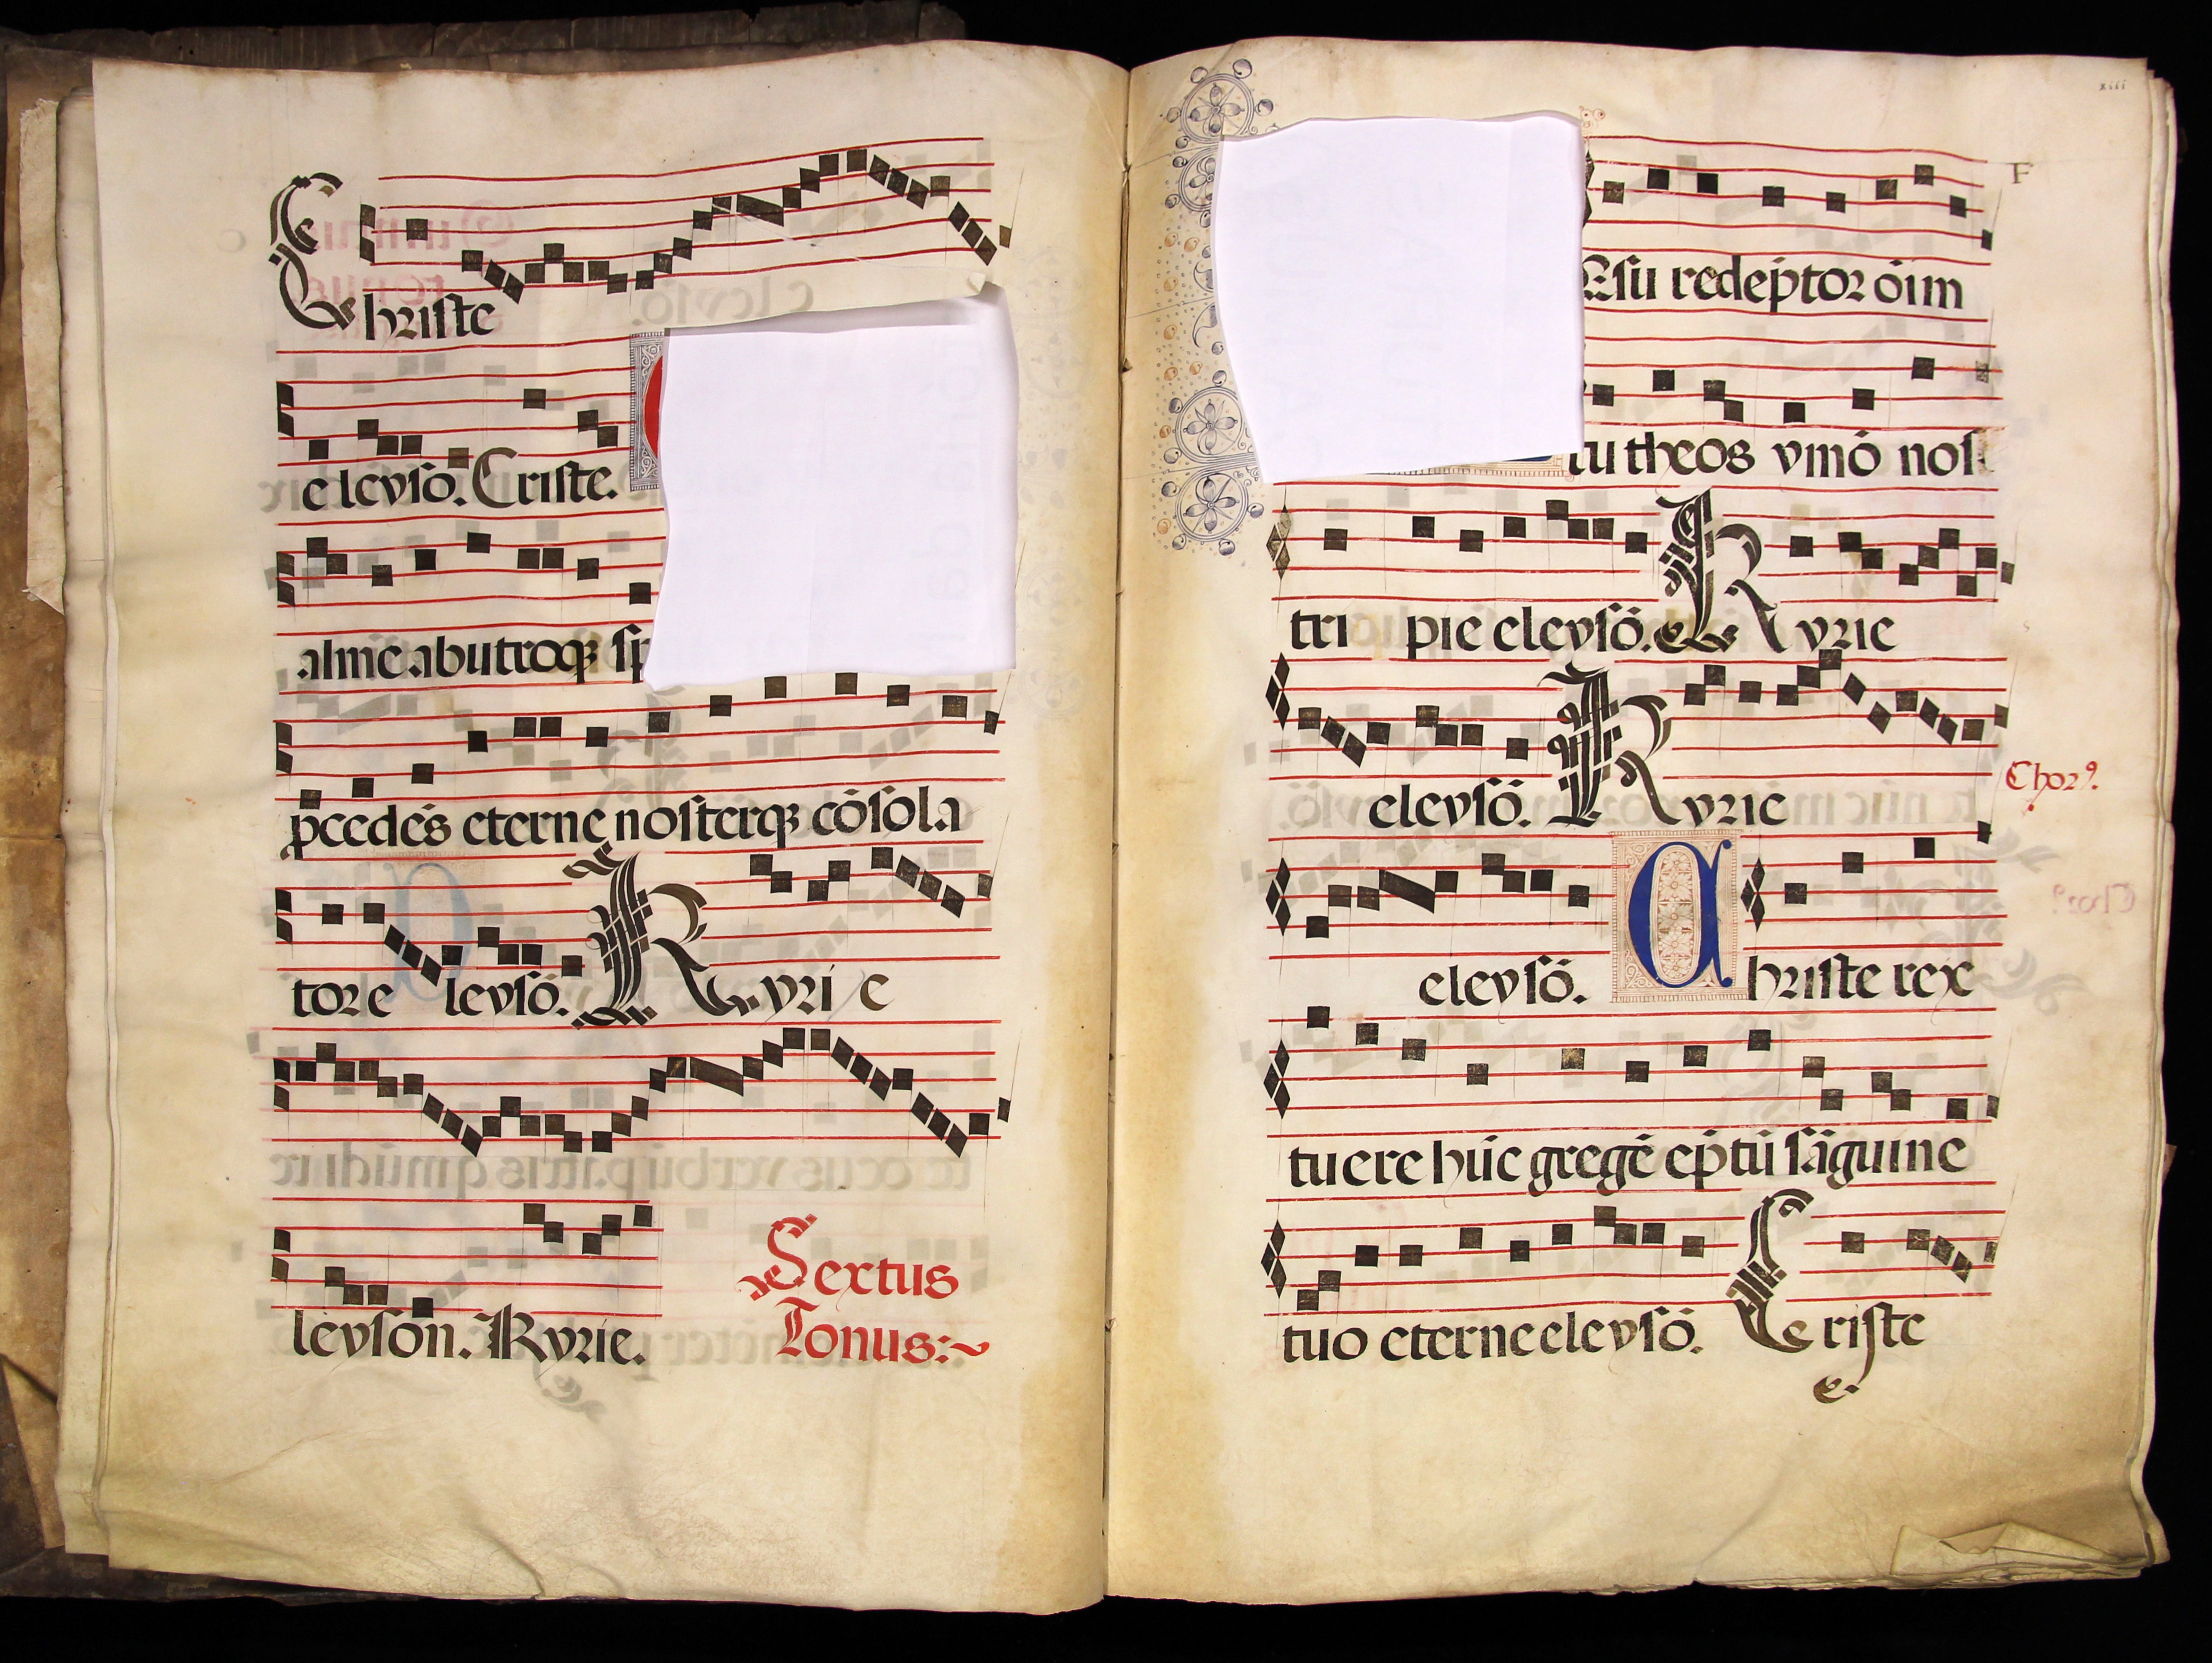 Christe
eleysō. Criste.
alme ab utroqꝫ
ꝓcedēs eterne nosterqꝫ cōsola
tor e leysō. Kyri e
leyson. Kyrie.
Sextus
Tonus:~
xiii
F
Esu redēptor oīm
tu theos ymō nos
tri pie eleysō. Kyrie
eleysō. Kyrie
Chorꝰ.
eleysō. Christe rex
tuere hūc gregē ēptū sāguine
tuo eterne eleysō. Criste
e.